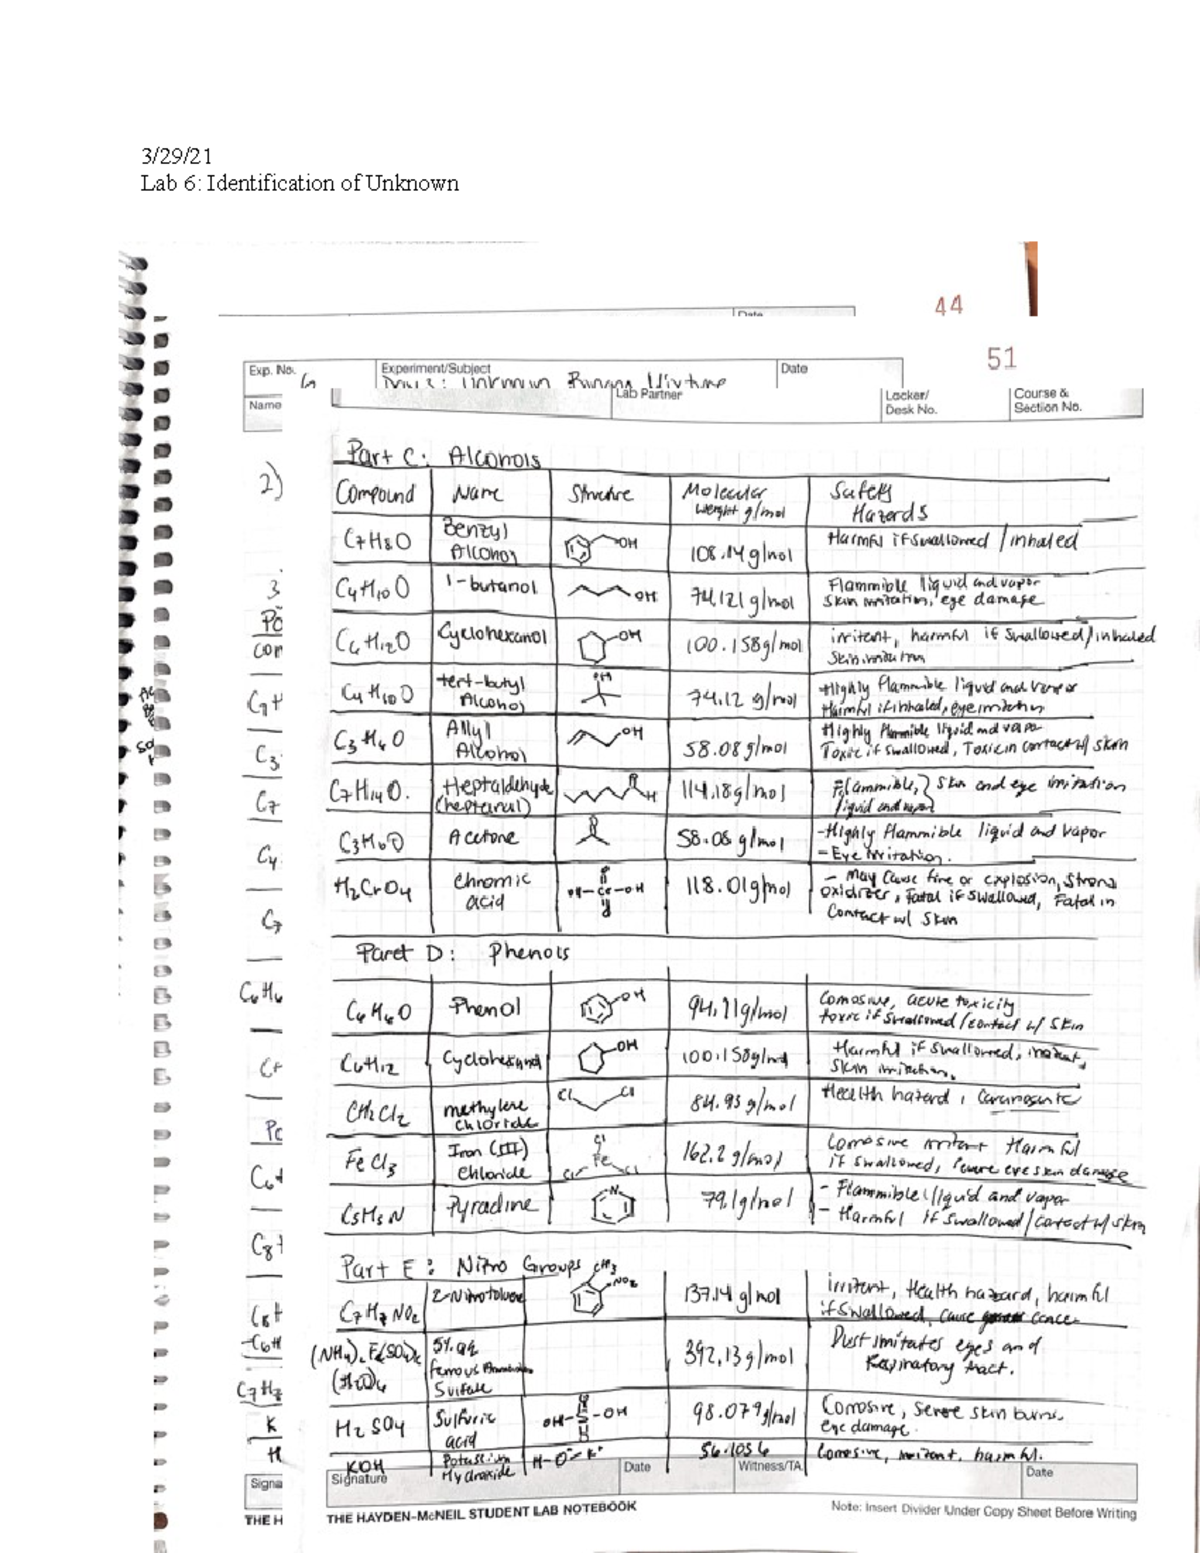 3/29/21
Lab 6: Identification of Unknown
44
Date
51
Exp. No.
Experiment/Subject
Date
Unknown
Name
Lab Partner
Locker/
Desk No.
Course &
Section No.
Part C: Alcohols
2)
Compound Name Structure Molecular Weight g/mol Safety Hazards
C7H8O Benzyl Alcohol OH 108.14 g/mol Harmful if swallowed / inhaled
C4H10O 1-butanol OH 74.121 g/mol Flammible liquid and vapor
skin irritation, eye damage
C6H12O Cyclohexanol OH 100.158 g/mol irritent, harmful if swallowed/inhaled
skin irritation
C4H10O tert-butyl Alcohol OH 74.12 g/mol -Highly flammible liquid and vapor
Harmful if inhaled, eye irritation
C3H6O Allyl Alcohol OH 58.08 g/mol Highly flammible liquid and vapor
Toxic if swallowed, Toxic in contact w/ skin
C7H14O. Heptaldehyde (heptanal) H 114.18 g/mol Flammible, skin and eye irritation
liquid and vapor
C3H6O Acetone 58.08 g/mol -Highly flammible liquid and vapor
- Eye irritation.
H2CrO4 chromic acid OH-Cr-OH 118.01 g/mol - May cause fire or explosion, strong
oxidizer, Fatal if swallowed, Fatal in
contact w/ skin
Part D: Phenols
C6H6O Phenol OH 94.11 g/mol Corrosive, acute toxicity
toxic if swallowed/contact w/ skin
C6H12 Cyclohexanol OH 100.158 g/mol Harmful if swallowed, irritent,
skin irritation.
CH2Cl2 methylene chloride Cl Cl 84.93 g/mol Health hazard, Carcinogenic
FeCl3 Iron (III) chloride Cl Fe Cl Cl 162.2 g/mol Corrosive irritent Harmful
if swallowed, severe eye skin damage
C5H5N Pyradine N 79.1 g/mol - Flammible liquid and vapor
- Harmful if swallowed/contact w/ skin
Part E: Nitro Groups
C7H7NO2 2-Nitrotoluene CH3 NO2 137.14 g/mol irritent, Health hazard, harmful
if swallowed, cause cancer
(NH4)2Fe(SO4)2 (H2O)6 5% aq ferrous Ammonium Sulfate 392.13 g/mol Dust irritates eyes and
Respiratory tract.
H2SO4 Sulfuric acid OH-S-OH 98.079 g/mol Corrosive, severe skin burns.
eye damage.
KOH Potassium Hydroxide H-O K+ 56.1056 Corrosive, irritent, harmful.
Signature
Date
Witness/TA
Date
Signa
THE H
THE HAYDEN-McNEIL STUDENT LAB NOTEBOOK
Note: Insert Divider Under Copy Sheet Before Writing